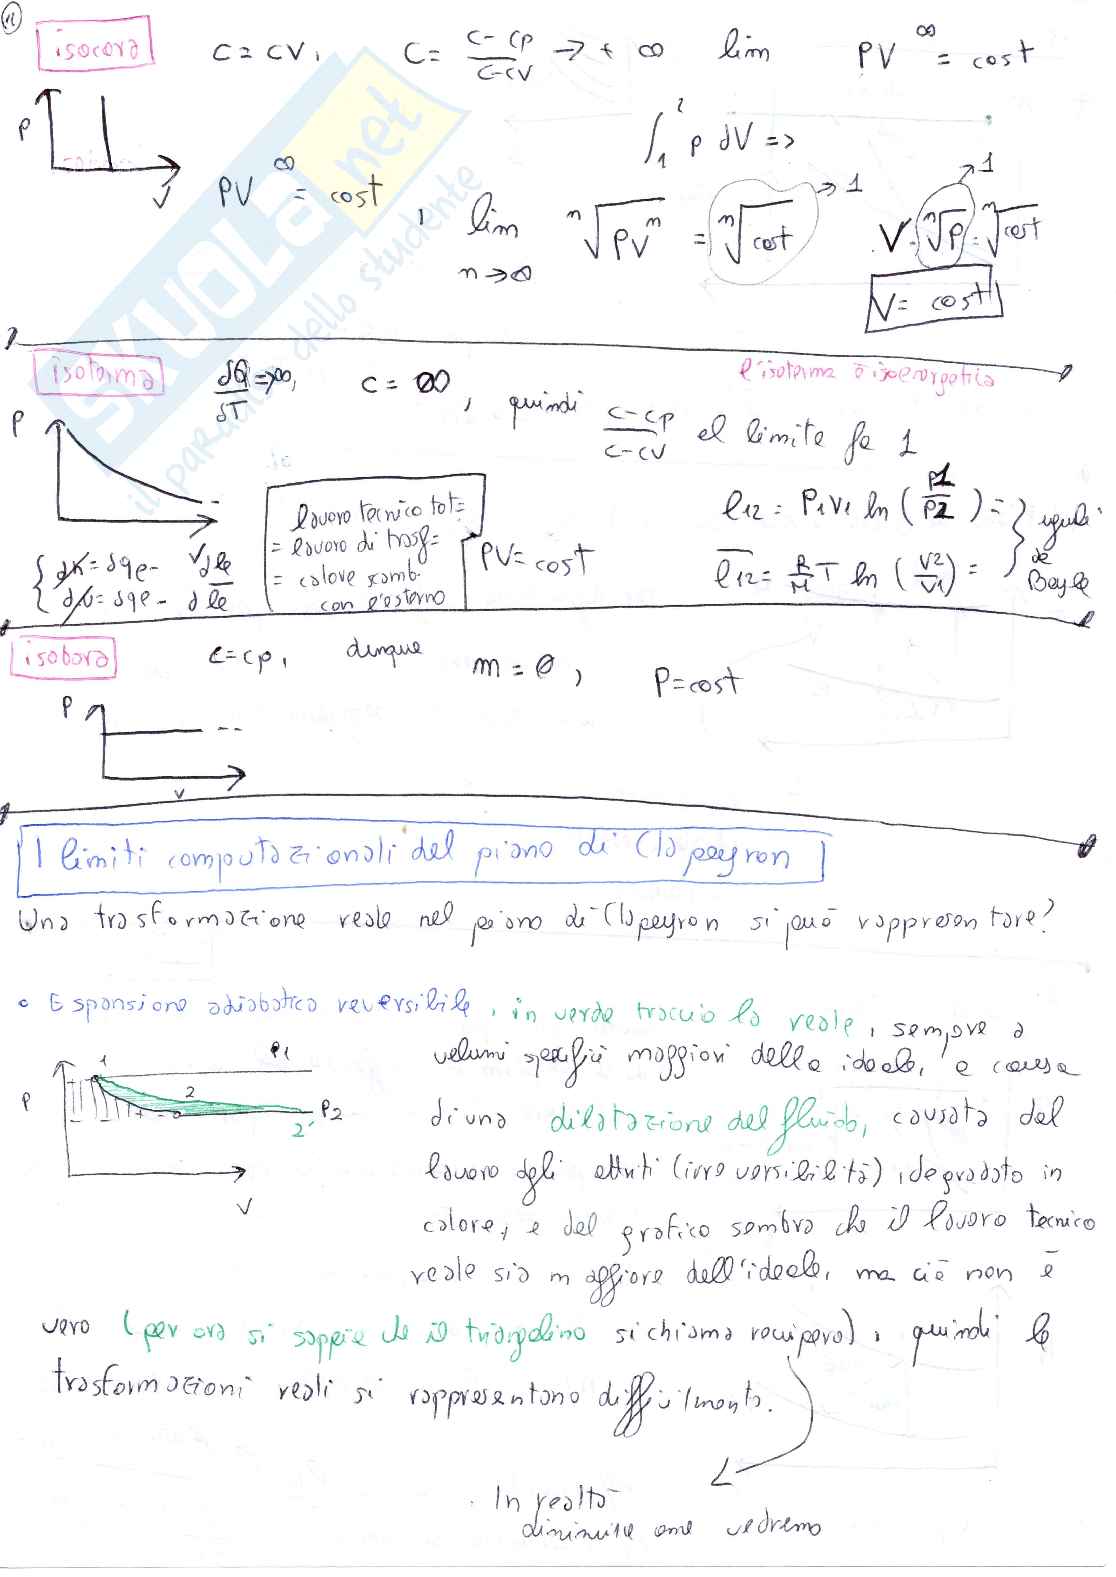 12
isocora
C = CV, C = C-CP / C-CV → + ∞ lim PV^∞ = cost
P
V
∫₁² P dV =>
PV^∞ = cost, lim n→∞ ⁿ√PVⁿ = ⁿ√cost → 1 V · ⁿ√P = ⁿ√cost → 1
V = cost
isoterma
δQ/δT => ∞, C = ∞, quindi C-CP / C-CV el limite fa 1
l'isoterma è isoenergetica
P
V
lavoro tecnico tot =
= lavoro di trasf =
= calore scamb.
con l'esterno
PV = cost
l12 = P1V1 ln (P1/P2) =
l12 = R/M T ln (V2/V1) =
uguali
da
Boyle
{ dh = dqe - dle
{ du = dqe - dle
isobara
C = CP, dunque m = 0, P = cost
P
V
I limiti computazionali del piano di Clapeyron
Una trasformazione reale nel piano di Clapeyron si può rappresentare?
Espansione adiabatica reversibile, in verde traccio la reale, sempre a
volumi specifici maggiori della ideale, a causa
di una dilatazione del fluido, causata dal
lavoro degli attriti (irreversibilità), degradato in
calore, e dal grafico sembra che il lavoro tecnico
reale sia maggiore dell'ideale, ma ciò non è
P
1
P1
2
P2
2'
V
vero (per ora si sappia che il triangolino si chiama recupero), quindi le
trasformazioni reali si rappresentano difficilmente.
In realtà
diminuisce come vedremo
SKUOLA.net
il paradiso dello studente